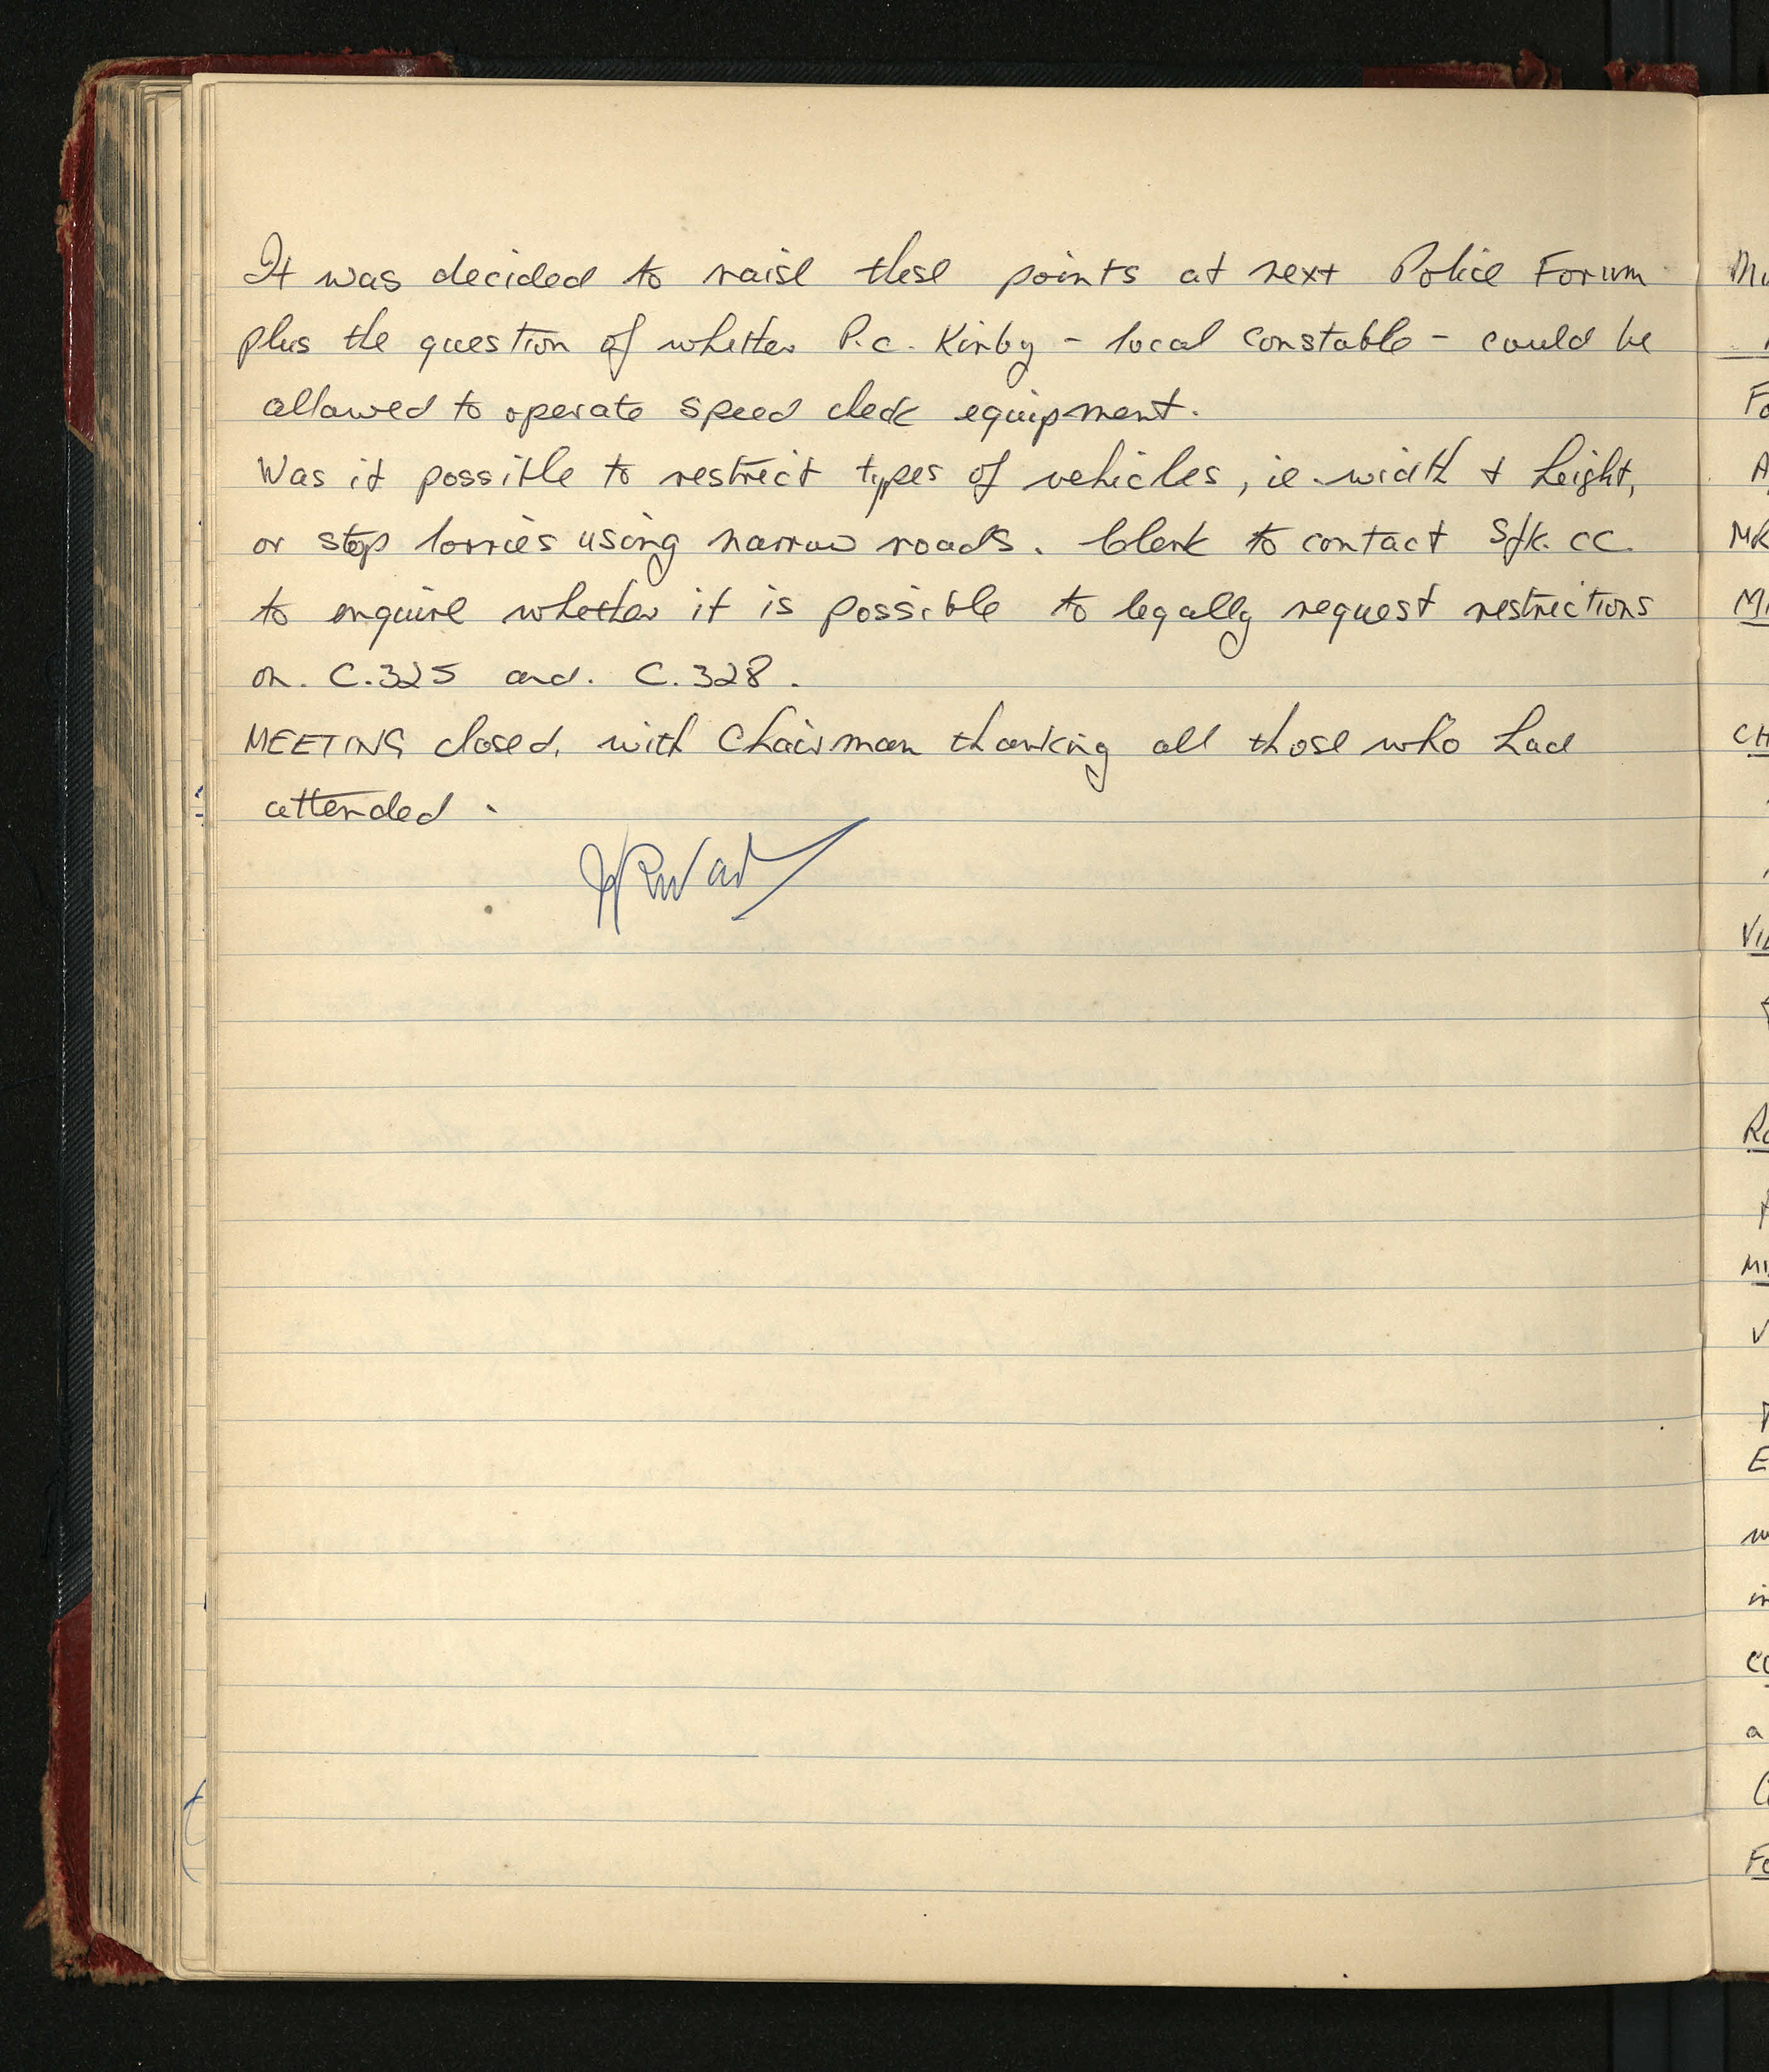 It was decided to raise these points at next Police Forum
plus the question of whether P.c. Kirby - local constable - could be
allowed to operate speed check equipment.
Was it possible to restrict types of vehicles, ie. width & height,
or stop lorries using narrow roads. Clerk to contact Sfk. CC.
to enquire whether it is possible to legally request restrictions
on. C.325 and. C.328.
MEETING closed, with Chairman thanking all those who had
attended.